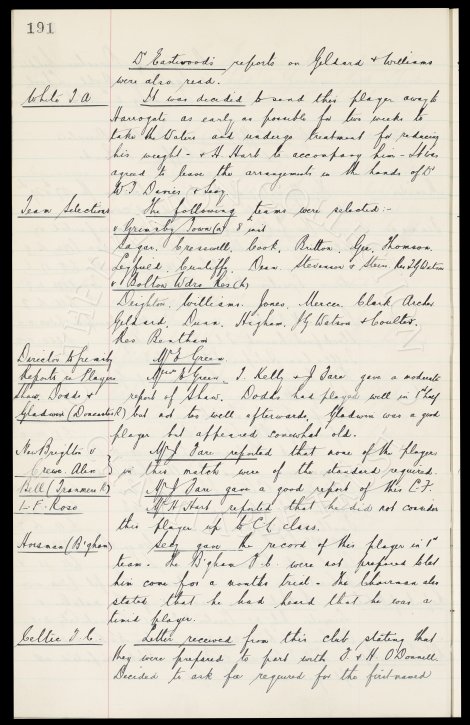 191
Dr Eastwood's reports on Geldard & Williams
were also read.
White T A
It was decided to send this player away to
Harrogate as early as possible for two weeks to
take the Waters and undergo treatment for reducing
his weight - & H Hart to accompany him - It was
agreed to leave the arrangements in the hands of Dr
W J Davies & Secy.
Team Selections
The following teams were selected:-
v Grimsby Town (a)
Sagar, Cresswell, Cook, Britton, Gee, Thomson,
Leyfield, Cunliffe, Dean, Stevenson & Stein. Res J G Watson
v Bolton Wdrs Res (h)
Deighton, Williams, Jones, Mercer, Clark, Archer
Geldard, Dunn, Higham, J G Watson & Coulter.
Res Bentham
Director to Grimsby
Mr E Green.
Reports re Players
Shaw, Dodds &
Gladwin (Doncaster R)
Messrs E Green, T. Kelly & J Fare gave a moderate
report of Shaw. Dodds had played well in 1st half
but not too well afterwards, Gladwin was a good
player but appeared somewhat old.
New Brighton v
Crewe Alex
Mr J Fare reported that none of the players
in this match were of the standard required.
Bell (Tranmere R)
Mr J Fare gave a good report of this C.F.
L.F. Roso
Mr H Hart reported that he did not consider
this player up to C L class.
Horsman (B'gham)
Secy gave the record of this player in 1st
team. The B'gham F.C. were not prepared to let
him come for a months trial. The Chairman also
stated that he had heard that he was a
timid player.
Celtic F.C.
Letter received from this club stating that
they were prepared to part with F. & H. O'Donnell.
Decided to ask fee required for the first-named